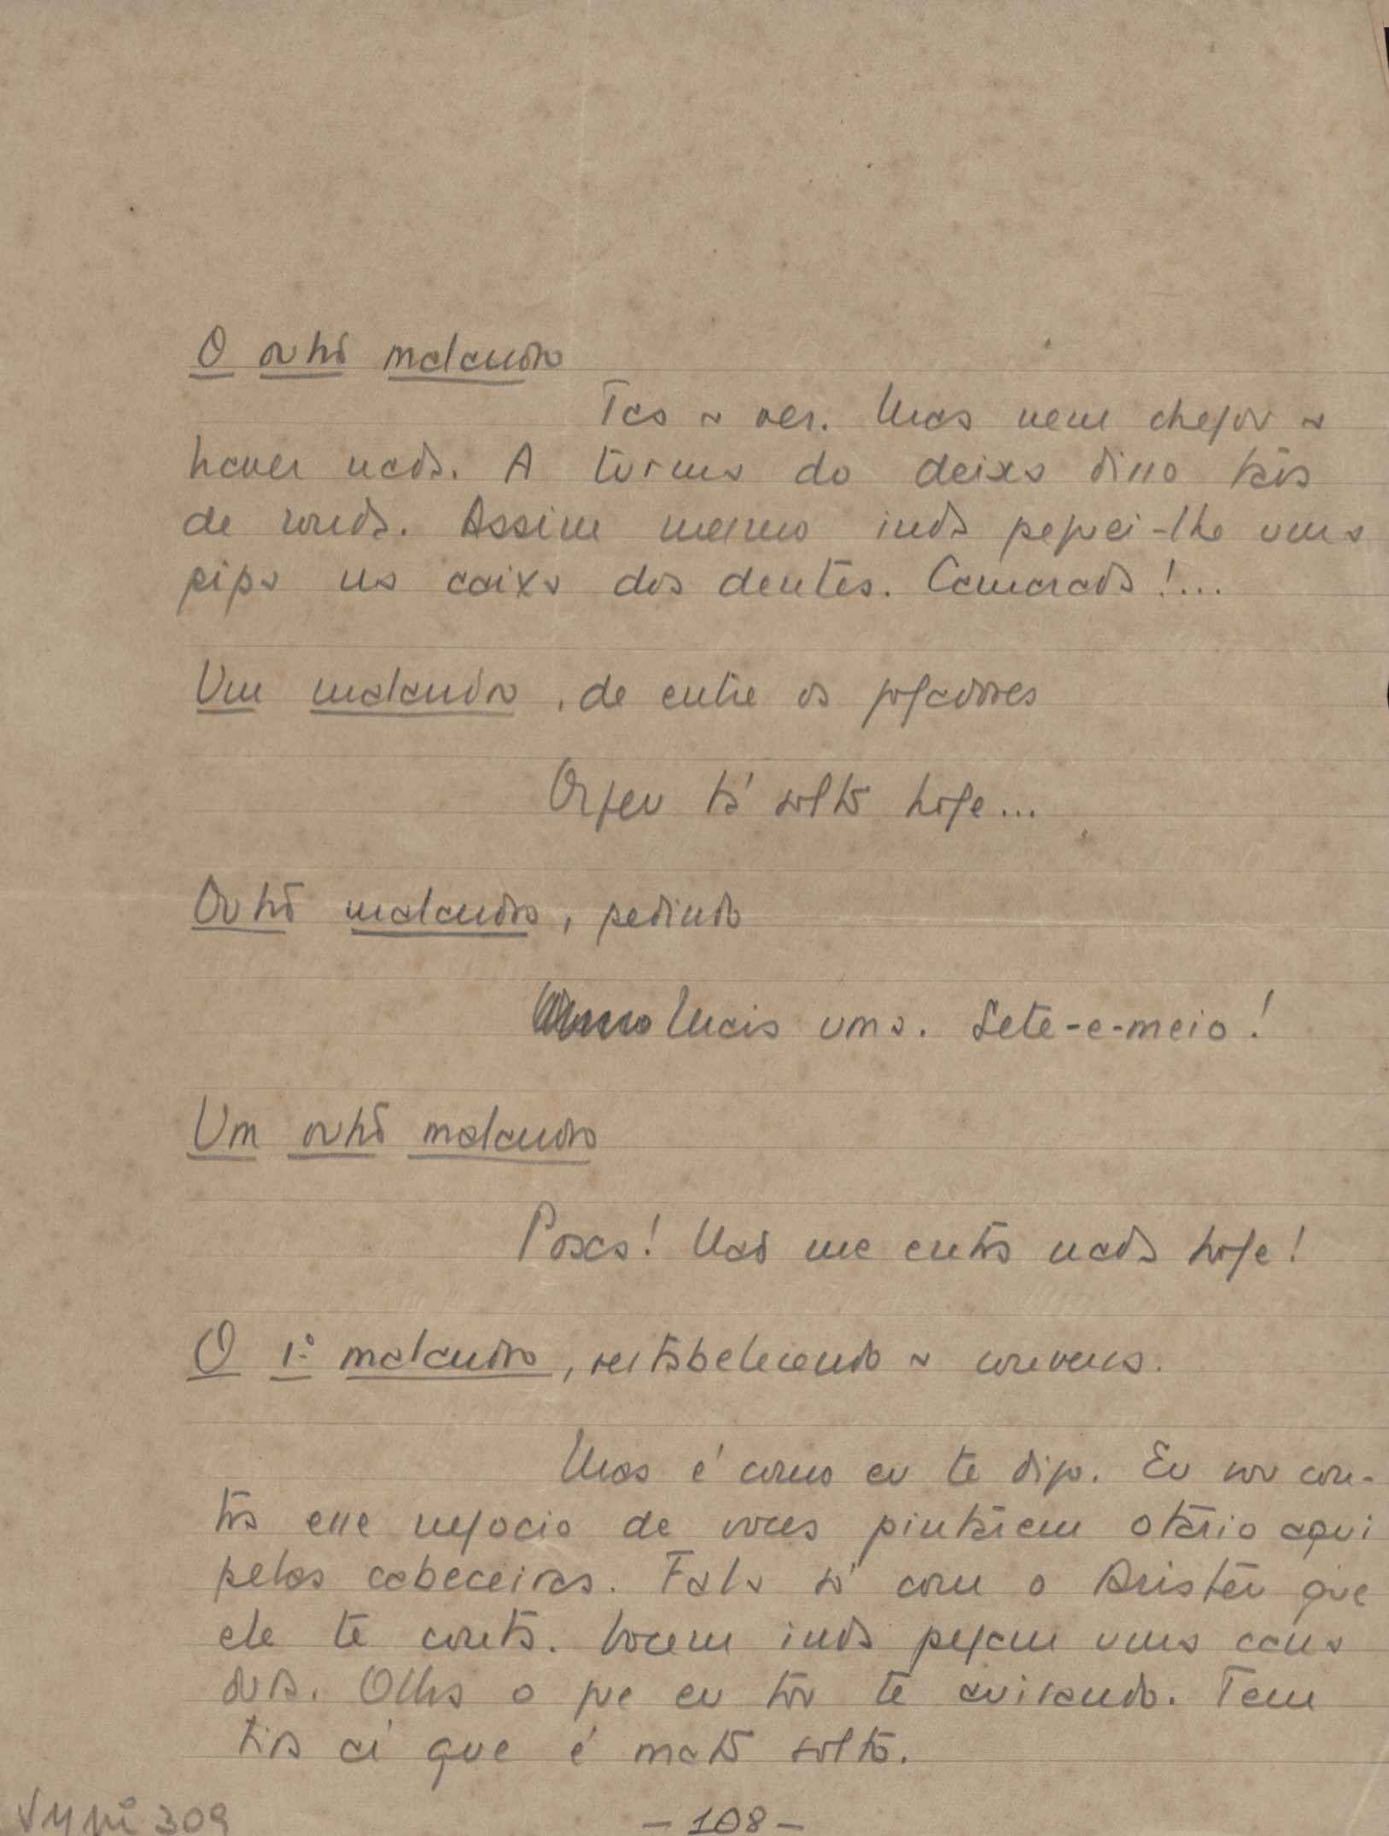 O outro malandro
Tas a ver. Mas nem chegou a
haver nada. A turma do deixa disso tava
de ronda. Assim mesmo inda peguei-lhe uma
pipa na caixa dos dentes. Camarada!...
Um malandro, de entre os jogadores
Orfeu tá solto hoje...
Outro malandro, pedindo
Mais uma. Sete-e-meio!
Um outro malandro
Poxa! Não me entra nada hoje!
O 1º malandro, restabelecendo a conversa.
Mas é como eu te digo. Eu sou con-
tra esse negocio de voces pintarem otário aqui
pelas cabeceiras. Fala só com o Aristeu que
ele te conta. Vocem inda pegam uma cana
dura. Olha o que eu tou te avisando. Tem
tira aí que é mato solto.
309
- 108 -